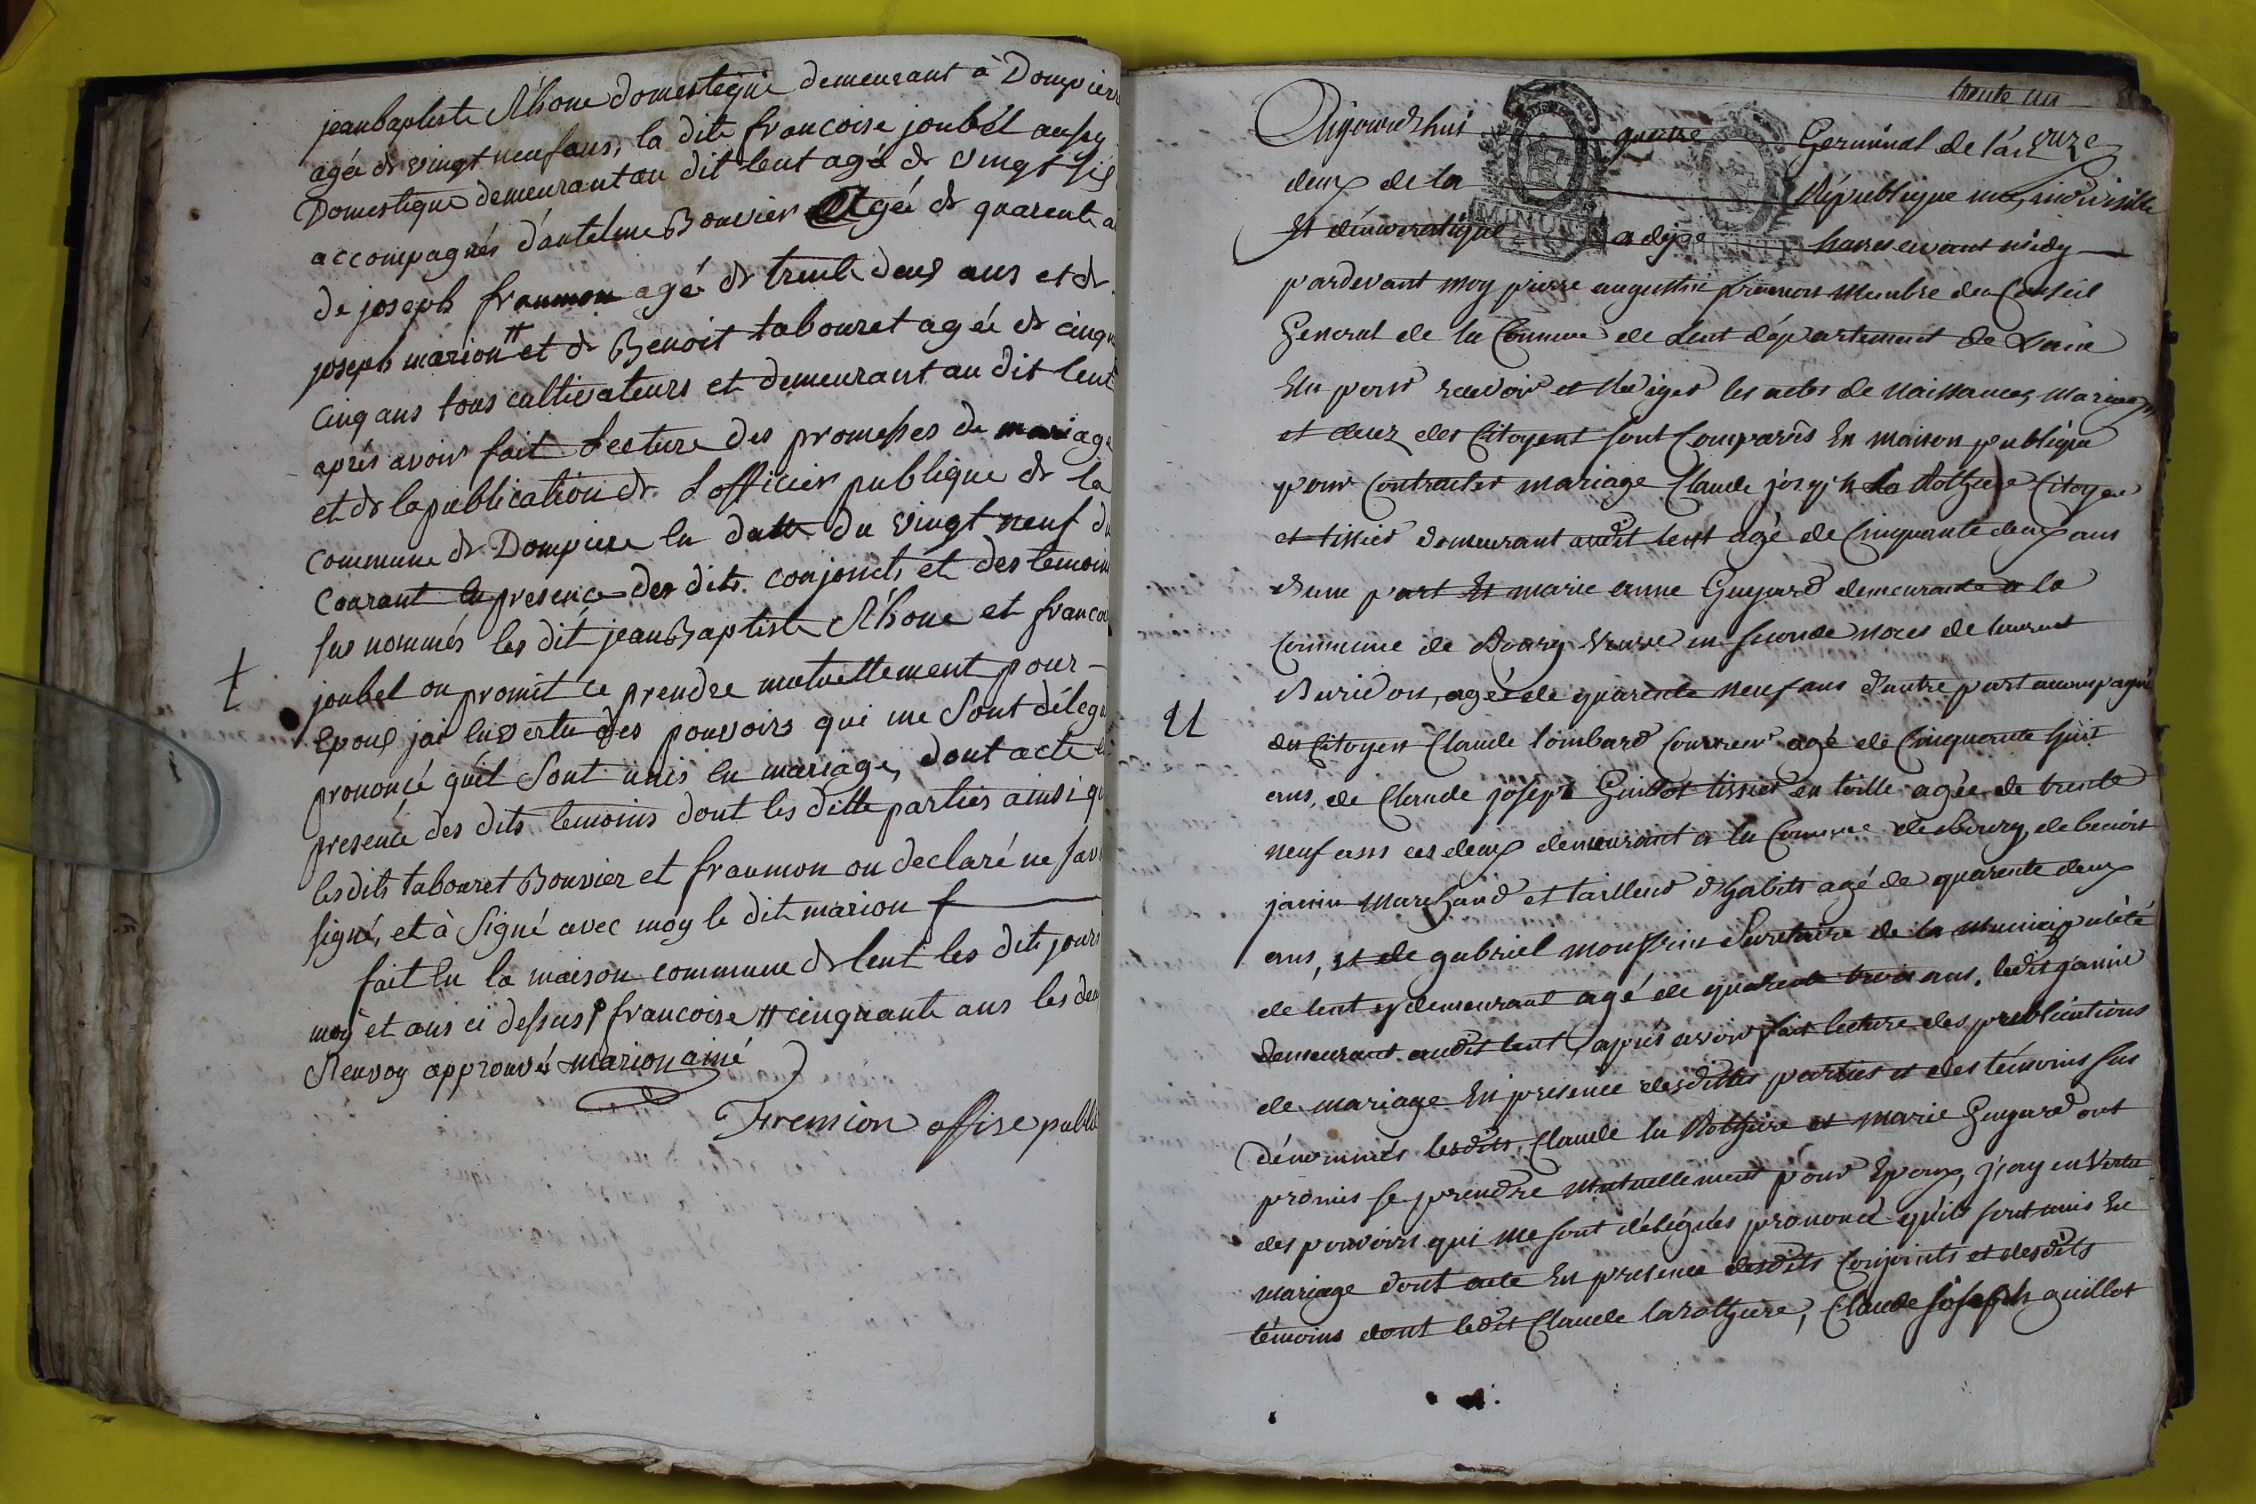 jeanbaptiste Rhone domestique demeurant à Dompierre
agée de vingt neuf ans, la dite francoise joubél aussy
Domestique demeurant au dit lent agée de vingt six
accompagnés d'antelme Bouvier agée de quarente a
de joseph fraumon agé de trente deux ans et de
joseph marion # et de Benoit tabouret agée de cinqu
cinq ans tous cultivateurs et demeurant au dit lent
aprés avoir fait Lecture des promesses de mariage
et de la publication de L officier publique de la
commune de Dompierre en datte du vingt neuf du
Courant en presence des dits conjoncts et des temoins
sus nommés les dit jeanBaptiste Rhone et francoi
joubel on promit ce prendre mutuellement pour -
Epoux jai en vertu des pouvoirs qui me Sont délegu
prononcé quil Sont unis en mariage, dont acte en
presence des dits temoins dont les ditte parties ainsi qu
lesdits tabouret Bouvier et fraumon on declaré ne sav
signé, et à Signé avec moy le dit marion f
fait en la maison commune de lent les dits jours
moy et ans ci dessus francoise # cinquante ans les deu
Renvoy approuvés marion ainé
Fremion offise publi
trente un
Aujourd'huy onze
Germinal de l'an
deux de la République une, indivisible
Et démocratique a dix heures avant midy
pardevant moy pierre augustin fremion Membre du Conseil
General de la Commune de Lent département de Lain
Elu pour recevoir et Rediger les actes de Naissances, Mariages
et decez des Citoyens sont Comparus En Maison publique
pour Contracter mariage Claude joseph La Rothiere Citoyen
et tissier demeurant audit lent agé de Cinquante deux ans
d'une part Et marie anne Guyard demeurante a la
Commune de Bourg Veuve en seconde noces de laurent
Buridon, agée de quarente neuf ans d'autre part accompagné
U
du Citoyen Claude lombard Couvreur agé de Cinquante huit
ans, de Claude joseph Guillot tissier en toille agée de trente
neuf ans ces deux demeurant a la Commune de bourg, de benoit
janin Marchand et tailleur d'habits agé de quarente deux
ans, et de gabriel monssrin Secretaire de la Municipalité
de lent y demeurant agé de quarente trois ans. ledit janin
demeurant audit lent, aprés avoir fait lecture des publications
de mariage En presence desdittes parties et des témoins sus
dénommés lesdits Claude la Rothiere et Marie Guyard ont
promis se prendre Mutuellement pour Epoux, j'ay en Vertu
des pouvoirs qui me sont délégués prononcé qu'ils sont unis En
mariage dont acte En presence desdits Conjoints et desdits
témoins dont ledit Claude larothiere, Claude joseph guillot